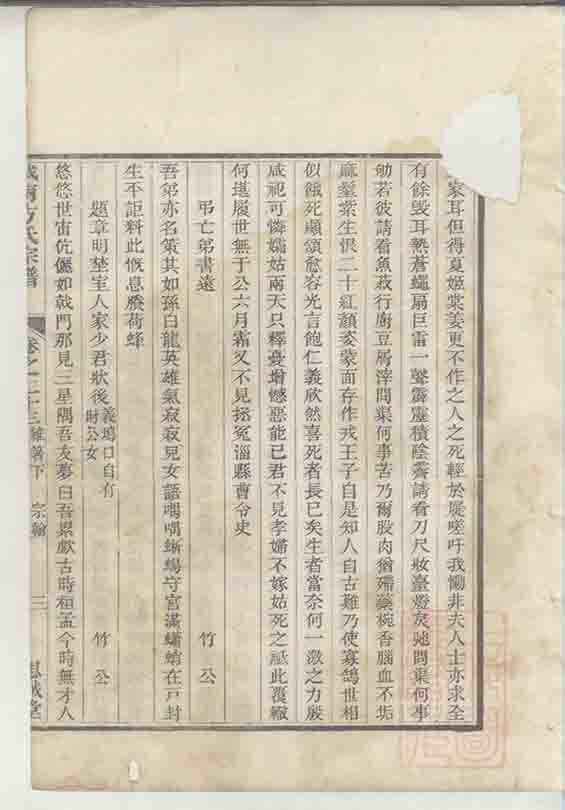 家耳但得夏姬棠姜更不作之人之死輕於屣嗟吁我慟非夫人士亦求全
有餘毀耳熱蒼蠅扇巨雷一聲霹靂積陰霽請看刀尺妝臺燈炙她問渠何事
劬若彼請看魚菽行廚豆屑滓問渠何事苦乃爾股肉猶殢藥椀香腦血不垢
麻鞋紫生恨二十紅顏妾蒙面存作戎王子自是知人自古難乃使寡鵠世相
似餓死顱頷愈容光言飽仁義欣然喜死者長已矣生者當奈何一激之力般
咸祝可憐孀姑兩天只釋憂增憾惡能已君不見孝婦不嫁姑死之誣此覆轍
何堪履世無于公六月霜又不見拯冤淄縣曹令史
弔亡弟書遠 竹公
吾弟亦名策其如孫白龍英雄氣寂寂兒女語喁喁蜥蝪守宮滿蠨蛸在戶封
生不詎料此慨息賸荷鋒
題章明埜室人家少君狀後 義塢口自有時公女 竹公
悠悠世宙伉儷如戟門那見三星隅吾友夢曰吾累歔古時桓孟今時無才人
城南方氏宗譜 卷之二十三 雜著下 宗翰 三 思誠堂